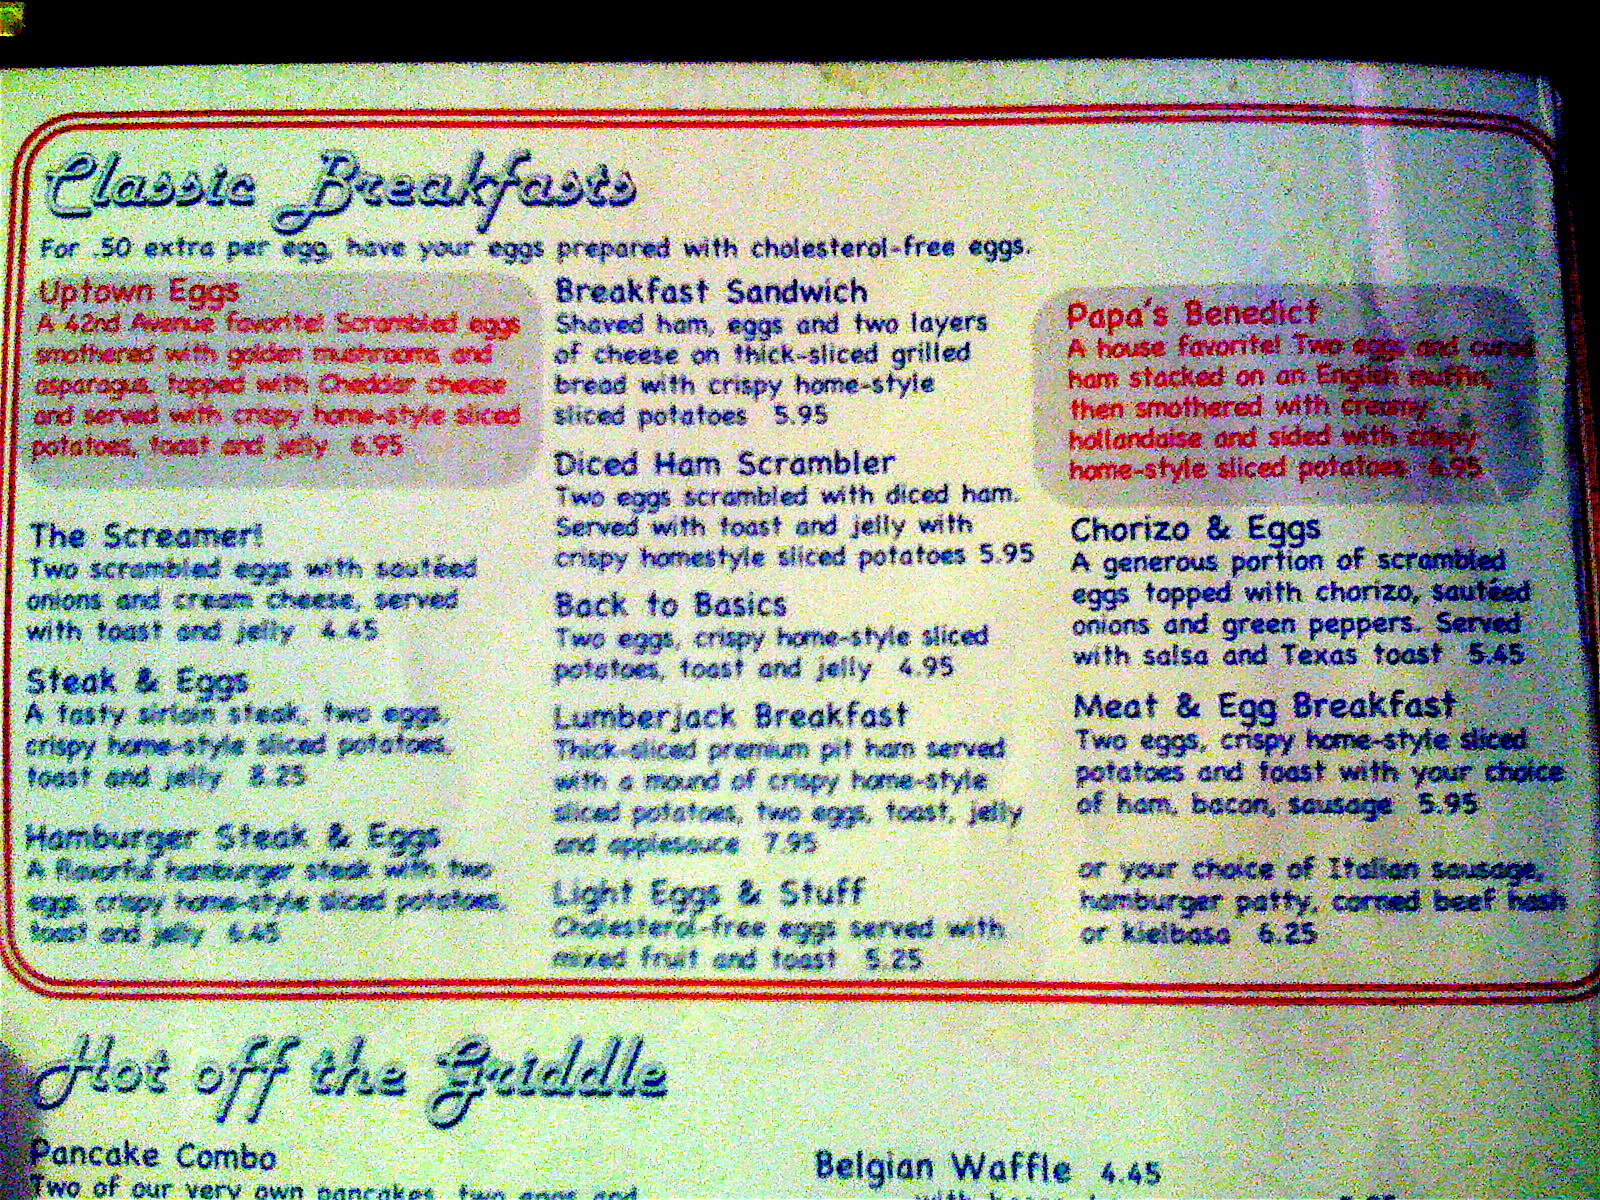 Classic Breakfasts
For .50 extra per egg, have your eggs prepared with cholesterol-free eggs.
Uptown Eggs
A 42nd Avenue favorite! Scrambled eggs
smothered with golden mushrooms and
asparagus, topped with Cheddar cheese
and served with crispy home-style sliced
potatoes, toast and jelly 6.95
The Screamer!
Two scrambled eggs with sautéed
onions and cream cheese, served
with toast and jelly 4.45
Steak & Eggs
A tasty sirloin steak, two eggs,
crispy home-style sliced potatoes,
toast and jelly 8.25
Hamburger Steak & Eggs
A flavorful hamburger steak with two
eggs, crispy home-style sliced potatoes,
toast and jelly 6.45
Breakfast Sandwich
Shaved ham, eggs and two layers
of cheese on thick-sliced grilled
bread with crispy home-style
sliced potatoes 5.95
Diced Ham Scrambler
Two eggs scrambled with diced ham.
Served with toast and jelly with
crispy homestyle sliced potatoes 5.95
Back to Basics
Two eggs, crispy home-style sliced
potatoes, toast and jelly 4.95
Lumberjack Breakfast
Thick-sliced premium pit ham served
with a mound of crispy home-style
sliced potatoes, two eggs, toast, jelly
and applesauce 7.95
Light Eggs & Stuff
Cholesterol-free eggs served with
mixed fruit and toast 5.25
Papa's Benedict
A house favorite! Two eggs and cured
ham stacked on an English muffin,
then smothered with creamy
hollandaise and sided with crispy
home-style sliced potatoes 6.95
Chorizo & Eggs
A generous portion of scrambled
eggs topped with chorizo, sautéed
onions and green peppers. Served
with salsa and Texas toast 5.45
Meat & Egg Breakfast
Two eggs, crispy home-style sliced
potatoes and toast with your choice
of ham, bacon, sausage 5.95
or your choice of Italian sausage,
hamburger patty, corned beef hash
or kielbasa 6.25
Hot off the Griddle
Pancake Combo
Two of our very own pancakes, two eggs and
Belgian Waffle 4.45